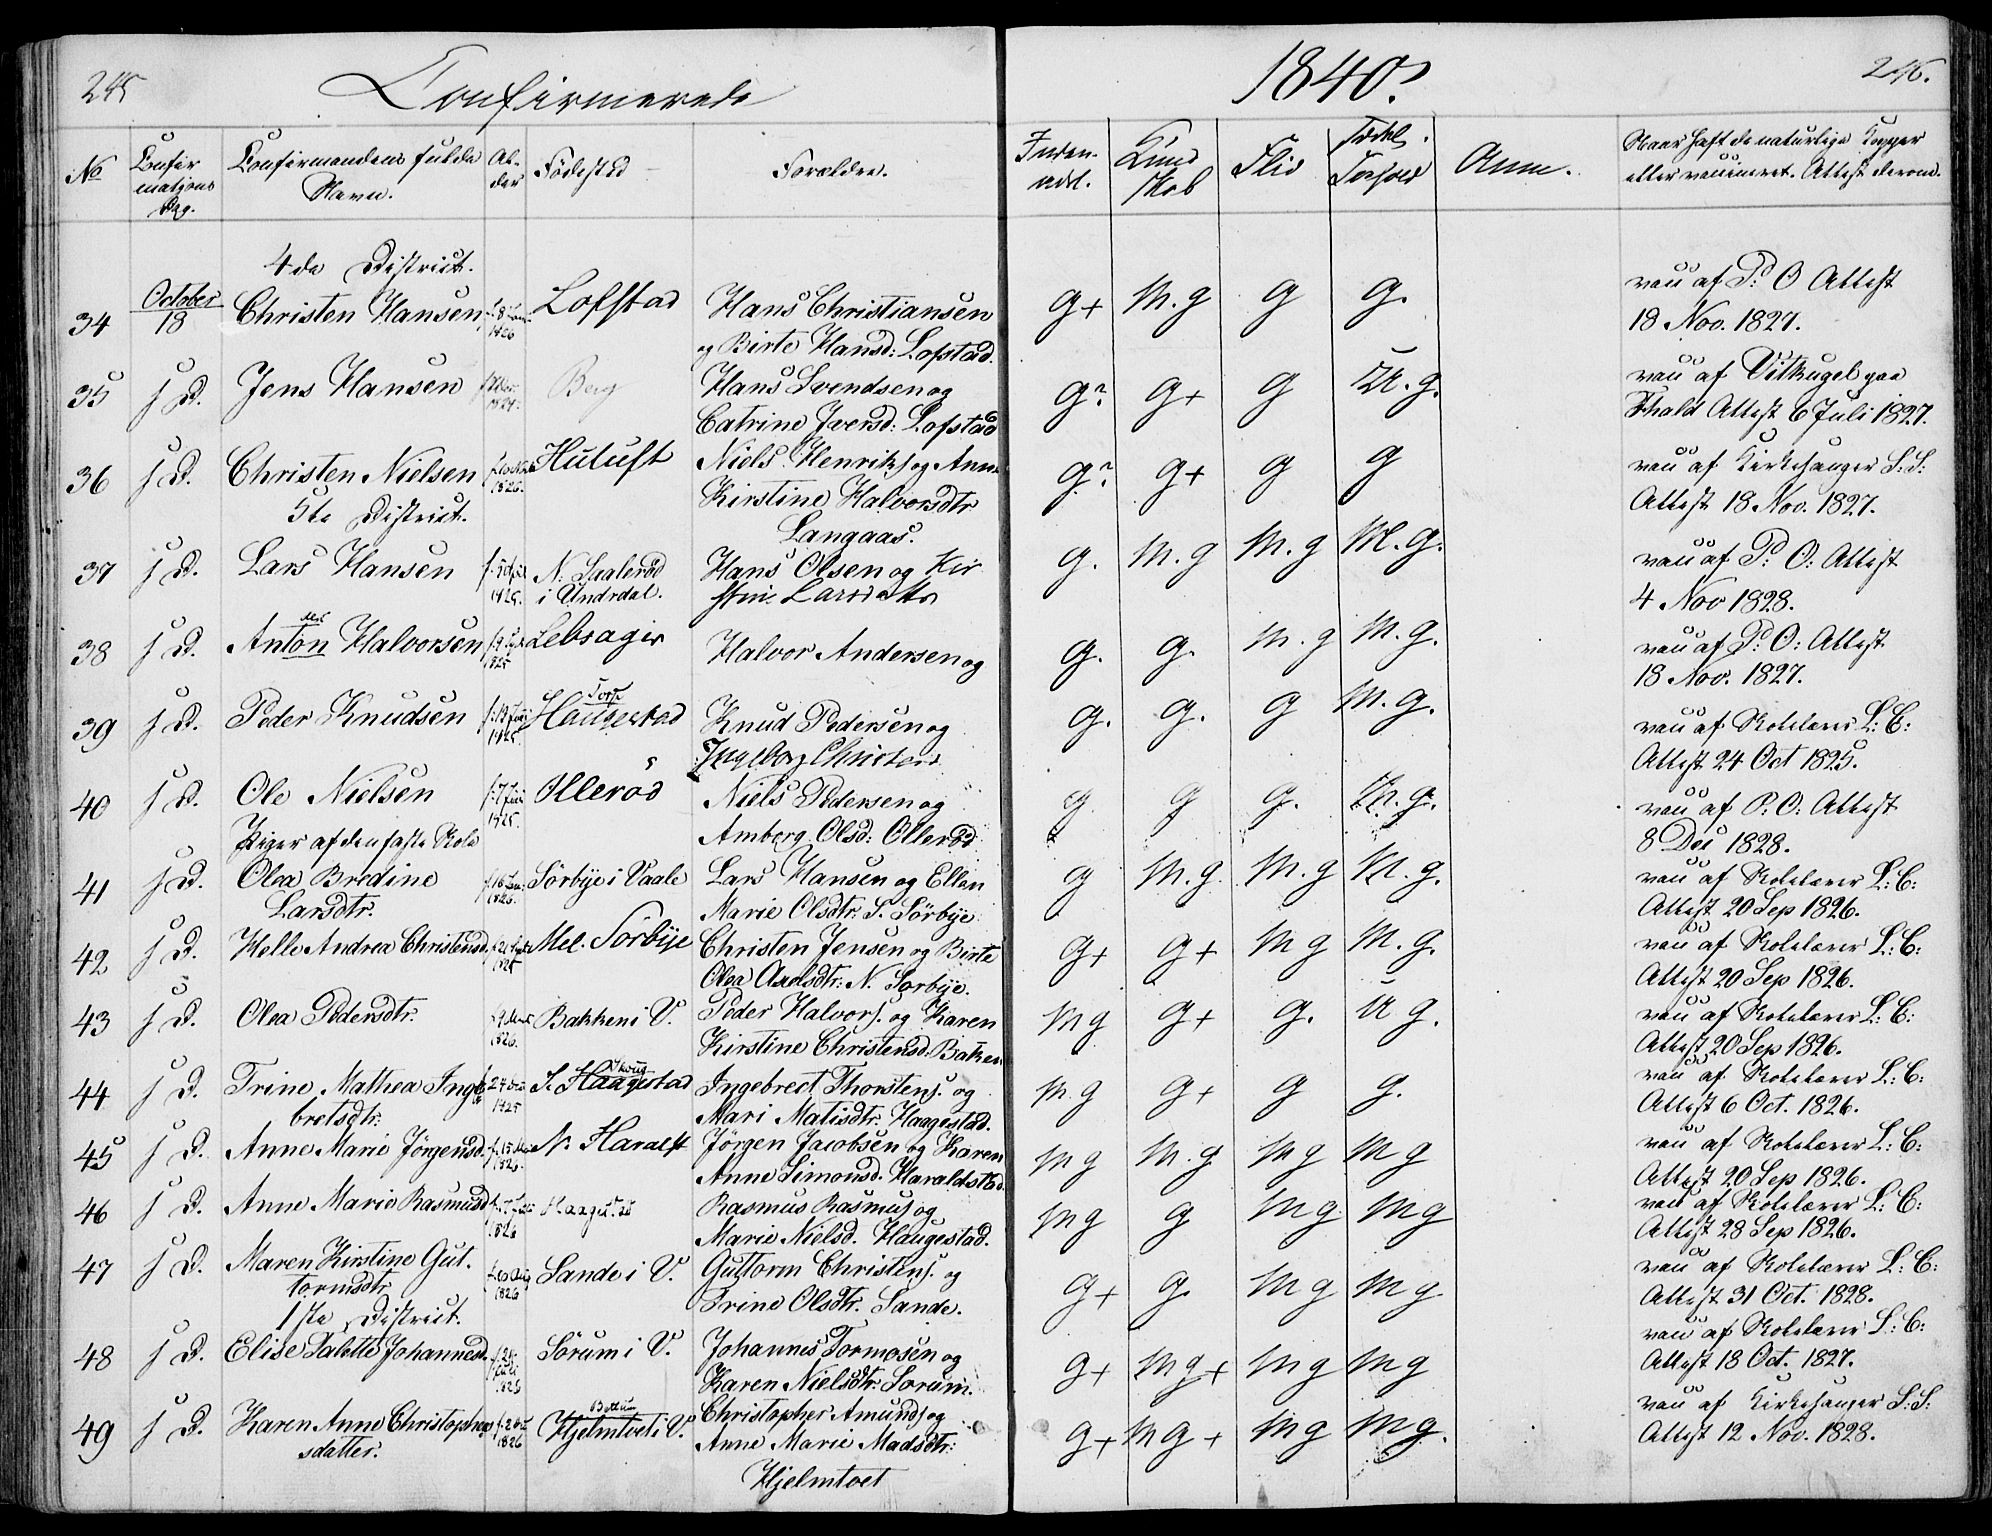 245
Confirmerede
1840.
246.
No
Confir
mations
Dag.
Confirmandens fulde
Navn.
Al-
der
Fødested
Forældre.
Inden-
ad.
Kund
skab
Flid
Forhold
Anm.
Naar haft de naturlige Kopper
eller vaccineret. Attest derom.
4de District.
34 October 18 Christen Hansen Lofstad Hans Christiansen g+ M.g g g. vacc af P: O Attest
1826 og Birte Hansd: Lofstad. 18 Nov. 1827.
35 s D. Jens Hansen Berg Hans Svendsen og g? g+ g M.g. vacc af Vitkugel paa
Catrine Iversd: Lofstad Fhald Attest 6 Juli 1827.
36 s D. Christen Nielsen Niels Henriks og Anne g? g+ g g vacc af Kirkesanger S.S:
5te District. Kirstine Halvorsdtr Attest 18 Nov. 1827.
Langaas.
37 s D. Lars Hansen N. Saalerød Hans Olsen og Kir g. M.g M.g M.g. vacc af P: O: Attest
1825. i Undrdal. stine Larsdatter 4 Nov 1828.
38 s D. Anton Halvorsen Halvor Andersen og g. g. M.g M.g. vacc af P: O: Attest
1825 18 Nov. 1827.
Torp
39 s D. Peder Knudsen Haugestad Knud Pedersen og g. g. g M.g. vacc af Skolelærer L: C:
1825. Ingeborg Christens Attest 24 Oct 1825.
40 s D. Ole Nielsen Ollerød Niels Pedersen og g g g. M.g. vacc af P. O: Attest
1825. Amberg Olsd: Ollerød 8 Dec 1828.
Piger af den faste Skole
41 s D. Olea Bredine Sørbye i Vaale Lars Hansen og Ellen g M.g. M.g M.g. vacc af Skolelærer L: C:
Larsdtr. 1826. Marie Olsdtr. S. Sörbye. Attest 20 Sep 1826.
42 s D. Helle Andrea Christensd. Mel. Sörbye Christen Jensen og Birte g+ g+ M g M.g. vacc af Skolelærer L: C:
1825 Olea Axelsdtr: N. Sorbye. Attest 20 Sep 1826.
43 s D. Olea Pedersdtr. Bakken i V. Peder Halvors. og Karen M g g+ g. M g. vacc af Skolelærer L: C:
1826. Kirstine Christensd. Bakken Attest 20 Sep 1826.
44 s D. Trine Mathea Inge S. Haagestad Ingebrect Thorstens. og M.g g+ g g. vacc af Skolelærer L: C:
bretsdtr. 1825 Mari Matisdtr. Haagestad. Attest 6 Oct. 1826.
45 s D. Anne Marie Jørgensd. N. Haralst Jörgen Jacobsen og Karen M g M.g M g M g vacc af Skolelærer L: C:
1826. Anne Simonsd. Haraldstad. Attest 20 Sep 1826.
46 s D. Anne Marie Rasmusd Haagestad Rasmus Rasmus og M g g M g M g vacc af Skolelærer L: C:
1826 Marie Nielsd. Haugestad. Attest 28 Sep 1826.
47 s D. Maren Kirstine Gut. Sande i V. Guttorm Christens. og g+ g. M g M g vacc af Skolelærer L: C:
tormsdtr 1826 Trine Olsdtr. Sande. Attest 31 Oct. 1828.
1ste District.
48 s D. Elise Talette Johannesd. Sørum i V. Johannes Tormosen og g+ M g+ M g M g vacc af Skolelærer L: C:
Juli Karen Nielsdtr: Sorum. Attest 18 Oct. 1827.
Bettum
49 s D. Karen Anne Christophers Hjelmtvet i V. Christopher Amunds og g+ M g+ M g M g. vacc af Kirkesanger S.S:
sdatter. 1826 Anne Marie Madsdtr: Attest 12 Nov. 1828.
Hjelmtvet